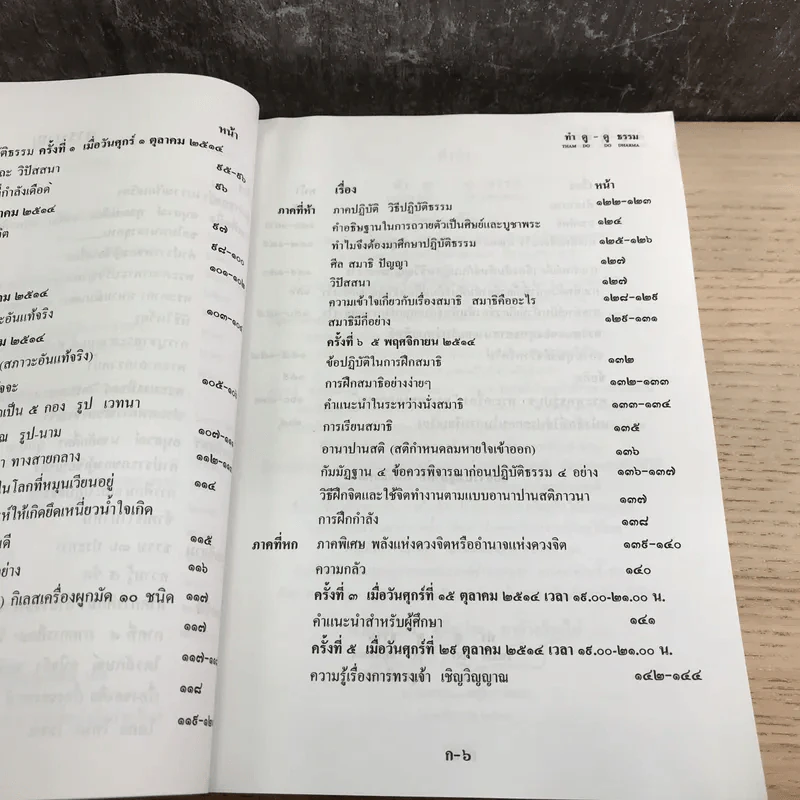 หน้า
ติธรรม ครั้งที่ ๑ เมื่อวันศุกร์ ๑ ตุลาคม ๒๕๑๔
ะ วิปัสสนา ๙๕-๙๖
ที่กำลังเดือด ๙๖
าคม ๒๕๑๔
ต ๙๗
๙๘-๑๐๐
๑๐๑-๑๐๒
าคม ๒๕๑๔
ะอันแท้จริง
คม ๒๕๑๔
(สภาวะอันแท้จริง)
จจะ
าเป็น ๕ กอง รูป เวทนา
ณ รูป-นาม
า ทางสายกลาง
ในโลกที่หมุนเวียนอยู่ ๑๑๔
ห์ให้เกิดยึดเหนี่ยวน้ำใจเกิด
ดี ๑๑๕
ย่าง ๑๑๖
) กิเลสเครื่องผูกมัด ๑๐ ชนิด ๑๑๗
๑๑๗
๑๑๘
ทำ ดู - ดู ธรรม
THAM DO DO DHARMA
เรื่อง หน้า
ภาคที่ห้า ภาคปฏิบัติ วิธีปฏิบัติธรรม ๑๒๒-๑๒๓
คำอธิษฐานในการถวายตัวเป็นศิษย์และบูชาพระ ๑๒๔
ทำไมจึงต้องมาศึกษาปฏิบัติธรรม ๑๒๕-๑๒๖
ศีล สมาธิ ปัญญา ๑๒๗
วิปัสสนา ๑๒๗
ความเข้าใจเกี่ยวกับเรื่องสมาธิ สมาธิคืออะไร ๑๒๘-๑๒๙
สมาธิมีกี่อย่าง ๑๒๙-๑๓๑
ครั้งที่ ๖ ๕ พฤศจิกายน ๒๕๑๔
ข้อปฏิบัติในการฝึกสมาธิ ๑๓๒
การฝึกสมาธิอย่างง่ายๆ ๑๓๒-๑๓๓
คำแนะนำในระหว่างนั่งสมาธิ ๑๓๓-๑๓๔
การเรียนสมาธิ ๑๓๕
อานาปานสติ (สติกำหนดลมหายใจเข้าออก) ๑๓๖
กัมมัฏฐาน ๔ ข้อควรพิจารณาก่อนปฏิบัติธรรม ๔ อย่าง ๑๓๖-๑๓๗
วิธีฝึกจิตและใช้จิตทำงานตามแบบอานาปานสติภาวนา ๑๓๗
การฝึกกำลัง ๑๓๘
ภาคที่หก ภาคพิเศษ พลังแห่งดวงจิตหรืออำนาจแห่งดวงจิต ๑๓๙-๑๔๐
ความกลัว ๑๔๐
ครั้งที่ ๓ เมื่อวันศุกร์ที่ ๑๕ ตุลาคม ๒๕๑๔ เวลา ๑๙.๐๐-๒๑.๐๐ น.
คำแนะนำสำหรับผู้ศึกษา ๑๔๑
ครั้งที่ ๕ เมื่อวันศุกร์ที่ ๒๙ ตุลาคม ๒๕๑๔ เวลา ๑๙.๐๐-๒๑.๐๐ น.
ความรู้เรื่องการทรงเจ้า เชิญวิญญาณ ๑๔๒-๑๔๔
ก-๖